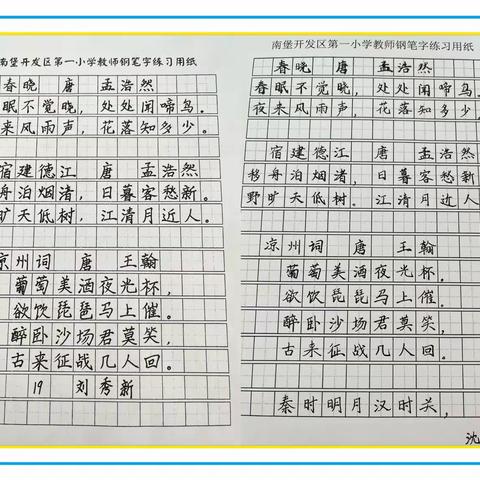 南堡开发区第一小学教师钢笔字练习用纸
春晓 唐 孟浩然
眠不觉晓，处处闻啼鸟。
来风雨声，花落知多少。
宿建德江 唐 孟浩然
舟泊烟渚，日暮客愁新。
旷天低树，江清月近人。
凉州词 唐 王翰
葡萄美酒夜光杯，
欲饮琵琶马上催。
醉卧沙场君莫笑，
古来征战几人回。
19 刘秀新
南堡开发区第一小学教师钢笔字练习用纸
春晓 唐 孟浩然
春眠不觉晓，处处闻啼鸟。
夜来风雨声，花落知多少，
宿建德江 唐 孟浩然
移舟泊烟渚，日暮客愁新
野旷天低树。江清月近人
凉州词 唐 王翰
葡萄美酒夜光杯。
欲饮琵琶马上催。
醉卧沙场君莫笑，
古来征战几人回。
秦时明月汉时关，
沈